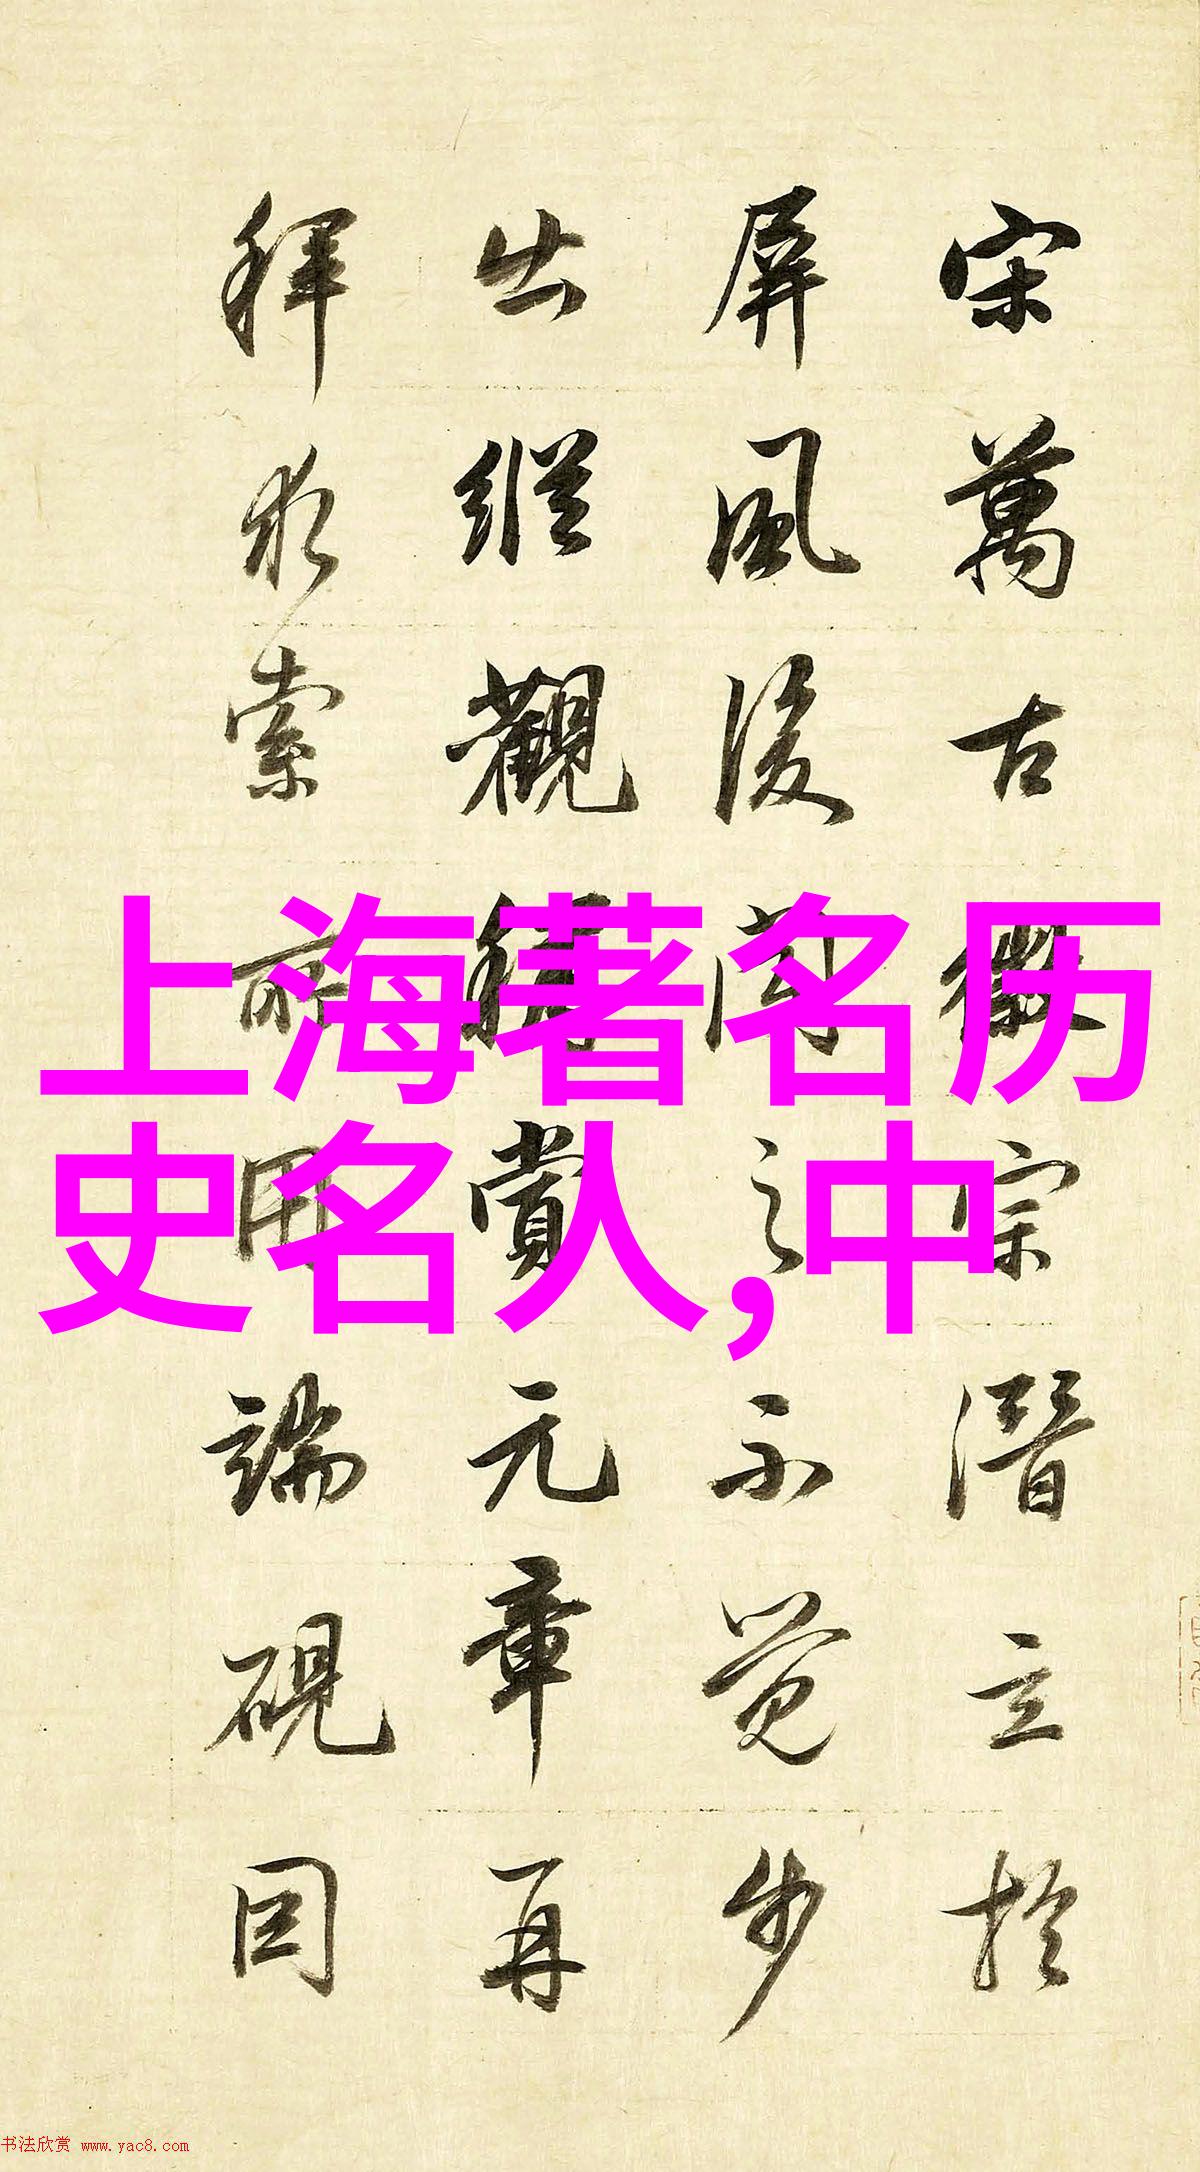 宋萬古徽宗潛立於
屏風後聞之不覺步
出縱觀稱賞元章再
拜求索前用端硯因
上海著名历
史名人,中
书法欣赏 www.yac8.com